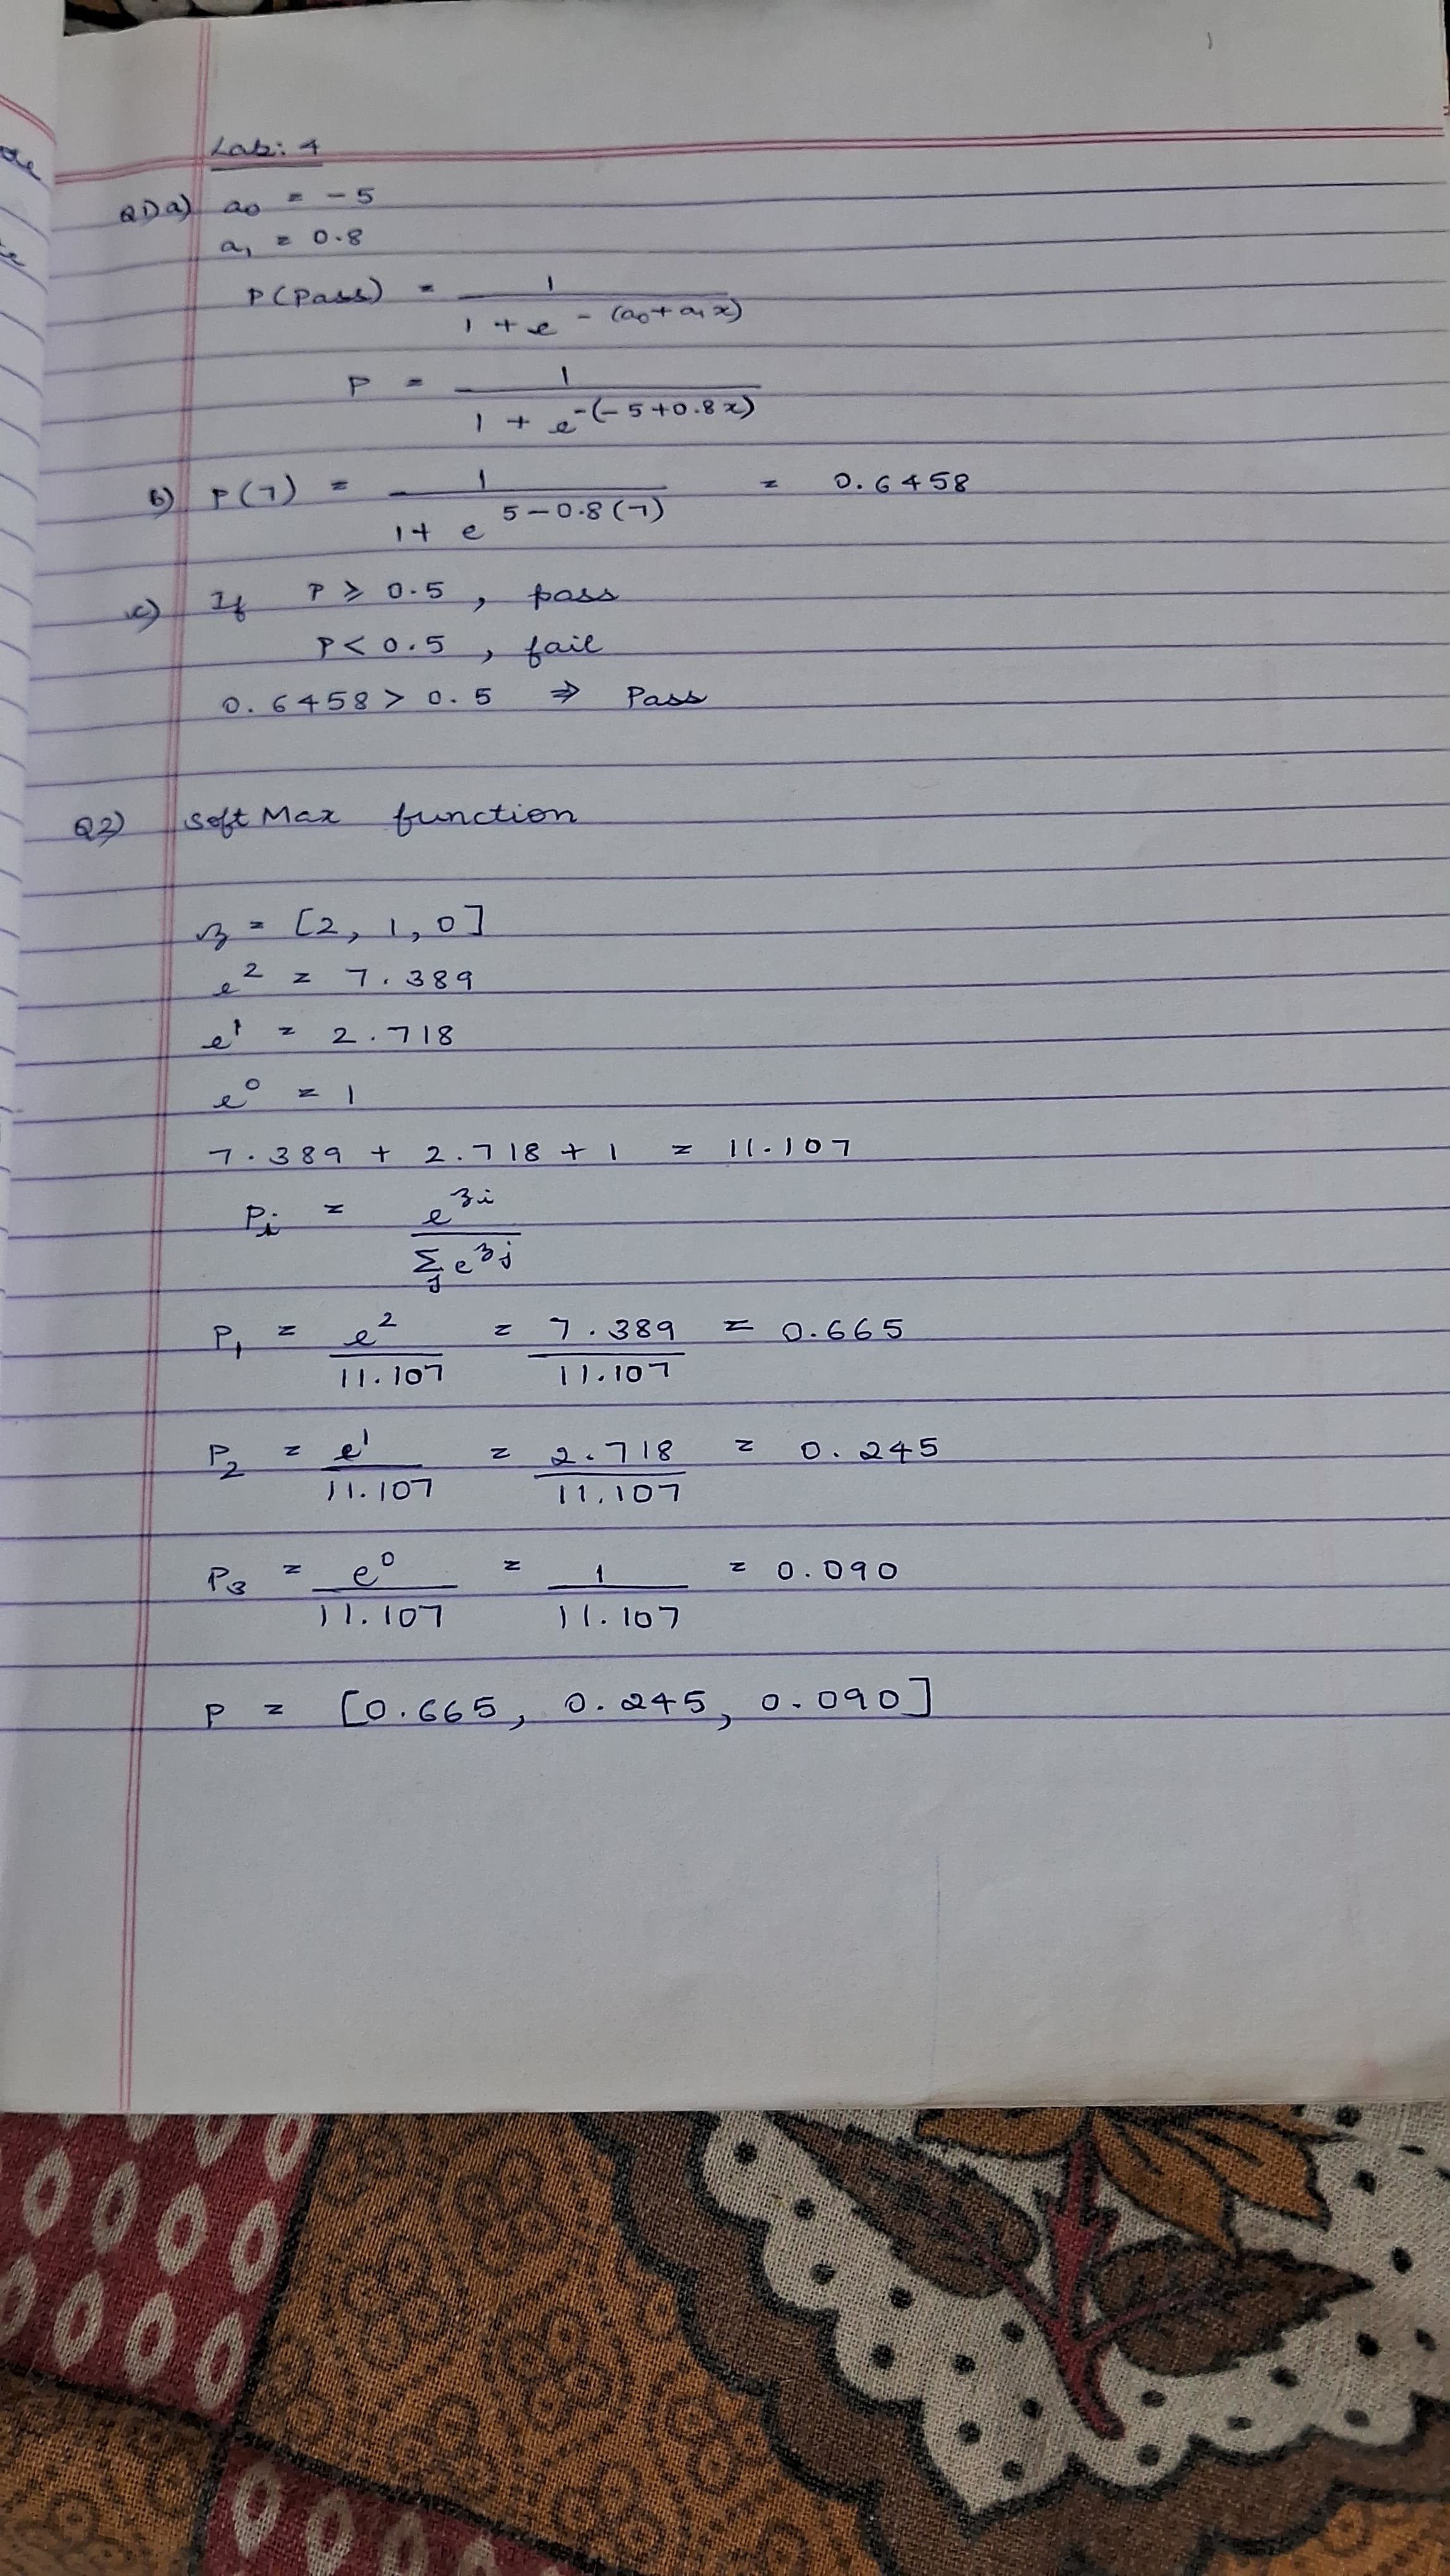 Lab: 4
Q1) a) a₀ = -5
a₁ = 0.8
P(Pass) = 1 / (1 + e^-(a₀+a₁x))
P = 1 / (1 + e^-(-5+0.8x))
b) P(7) = 1 / (1 + e^(5-0.8(7))) = 0.6458
c) If P ≥ 0.5, pass
P < 0.5, fail
0.6458 > 0.5 ⇒ Pass
Q2) SoftMax function
z = [2, 1, 0]
e² = 7.389
e¹ = 2.718
e⁰ = 1
7.389 + 2.718 + 1 = 11.107
Pᵢ = e^zi / Σⱼ e^zj
P₁ = e² / 11.107 = 7.389 / 11.107 = 0.665
P₂ = e¹ / 11.107 = 2.718 / 11.107 = 0.245
P₃ = e⁰ / 11.107 = 1 / 11.107 = 0.090
P = [0.665, 0.245, 0.090]